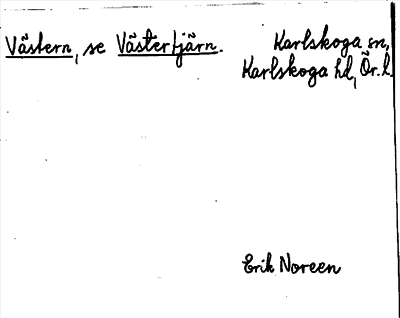 Västern, se Västertjärn. Karlskoga sn,
Karlskoga hd, Ör. l.
Erik Noreen